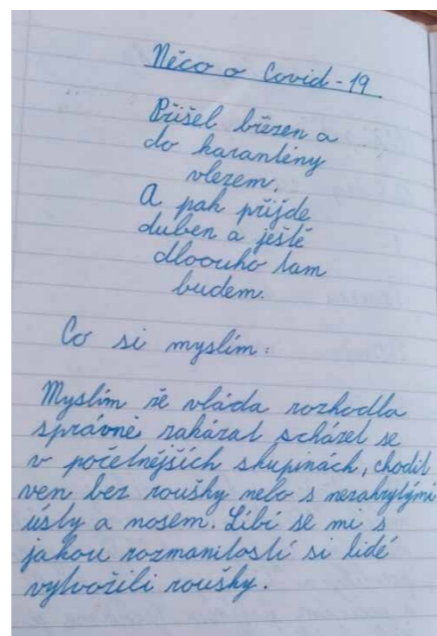 Něco o Covid-19
Přišel březen a
do karantény
vlezem.
A pak přijde
duben a ještě
dloouho tam
budem.
Co si myslím:
Myslím že vláda rozhodla
správně zakázat scházet se
v početnějších skupinách, chodit
ven bez roušky nebo s nezakrytými
ústy a nosem. Líbí se mi s
jakou rozmanitostí si lidé
vytvořili roušky.